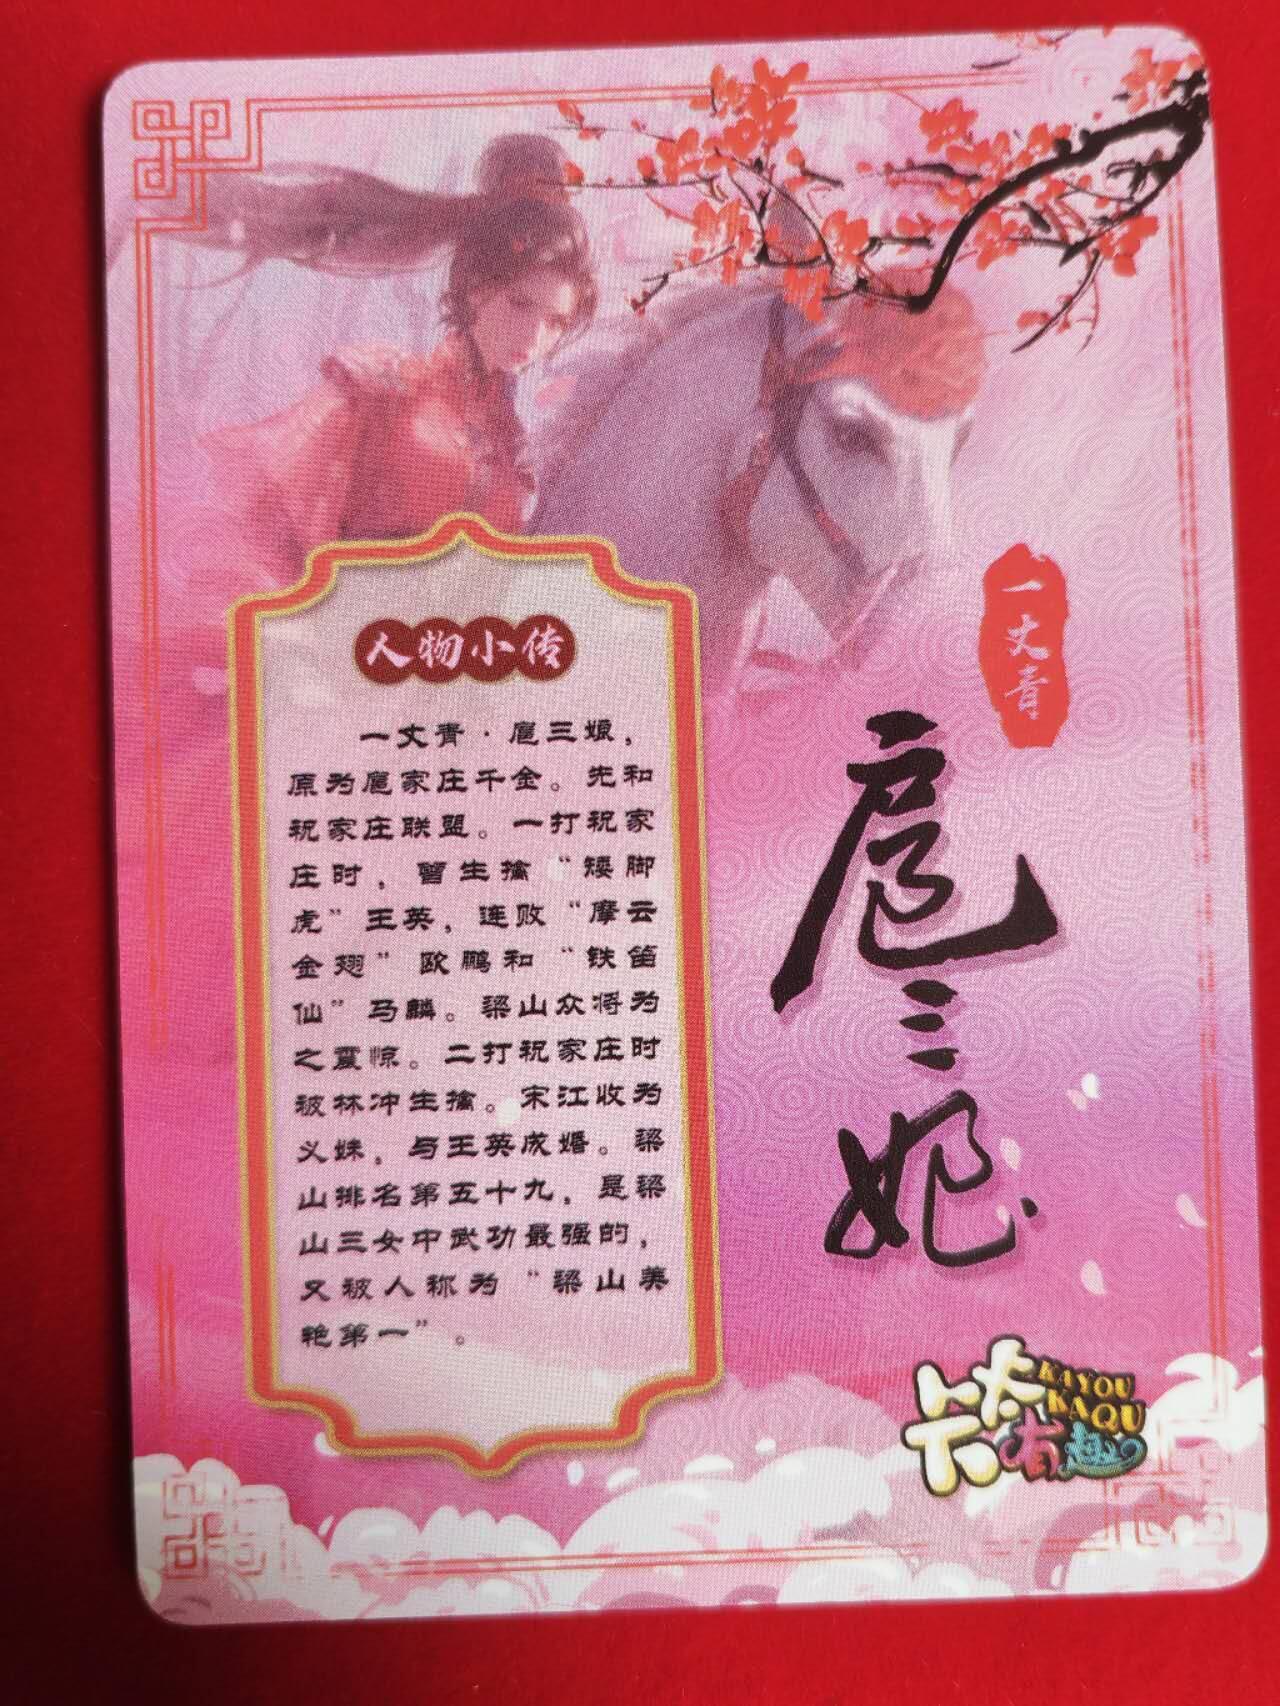 人物小传
一丈青·扈三娘，
原为扈家庄千金。先和
祝家庄联盟。一打祝家
庄时，曾生擒“矮脚
虎”王英，连败“摩云
金翅”欧鹏和“铁笛
仙”马麟。梁山众将为
之震惊。二打祝家庄时
被林冲生擒。宋江收为
义妹，与王英成婚。梁
山排名第五十九，是梁
山三女中武功最强的，
又被人称为“梁山美
艳第一”。
一丈青
扈三娘
KAYOU
KAQU
有趣